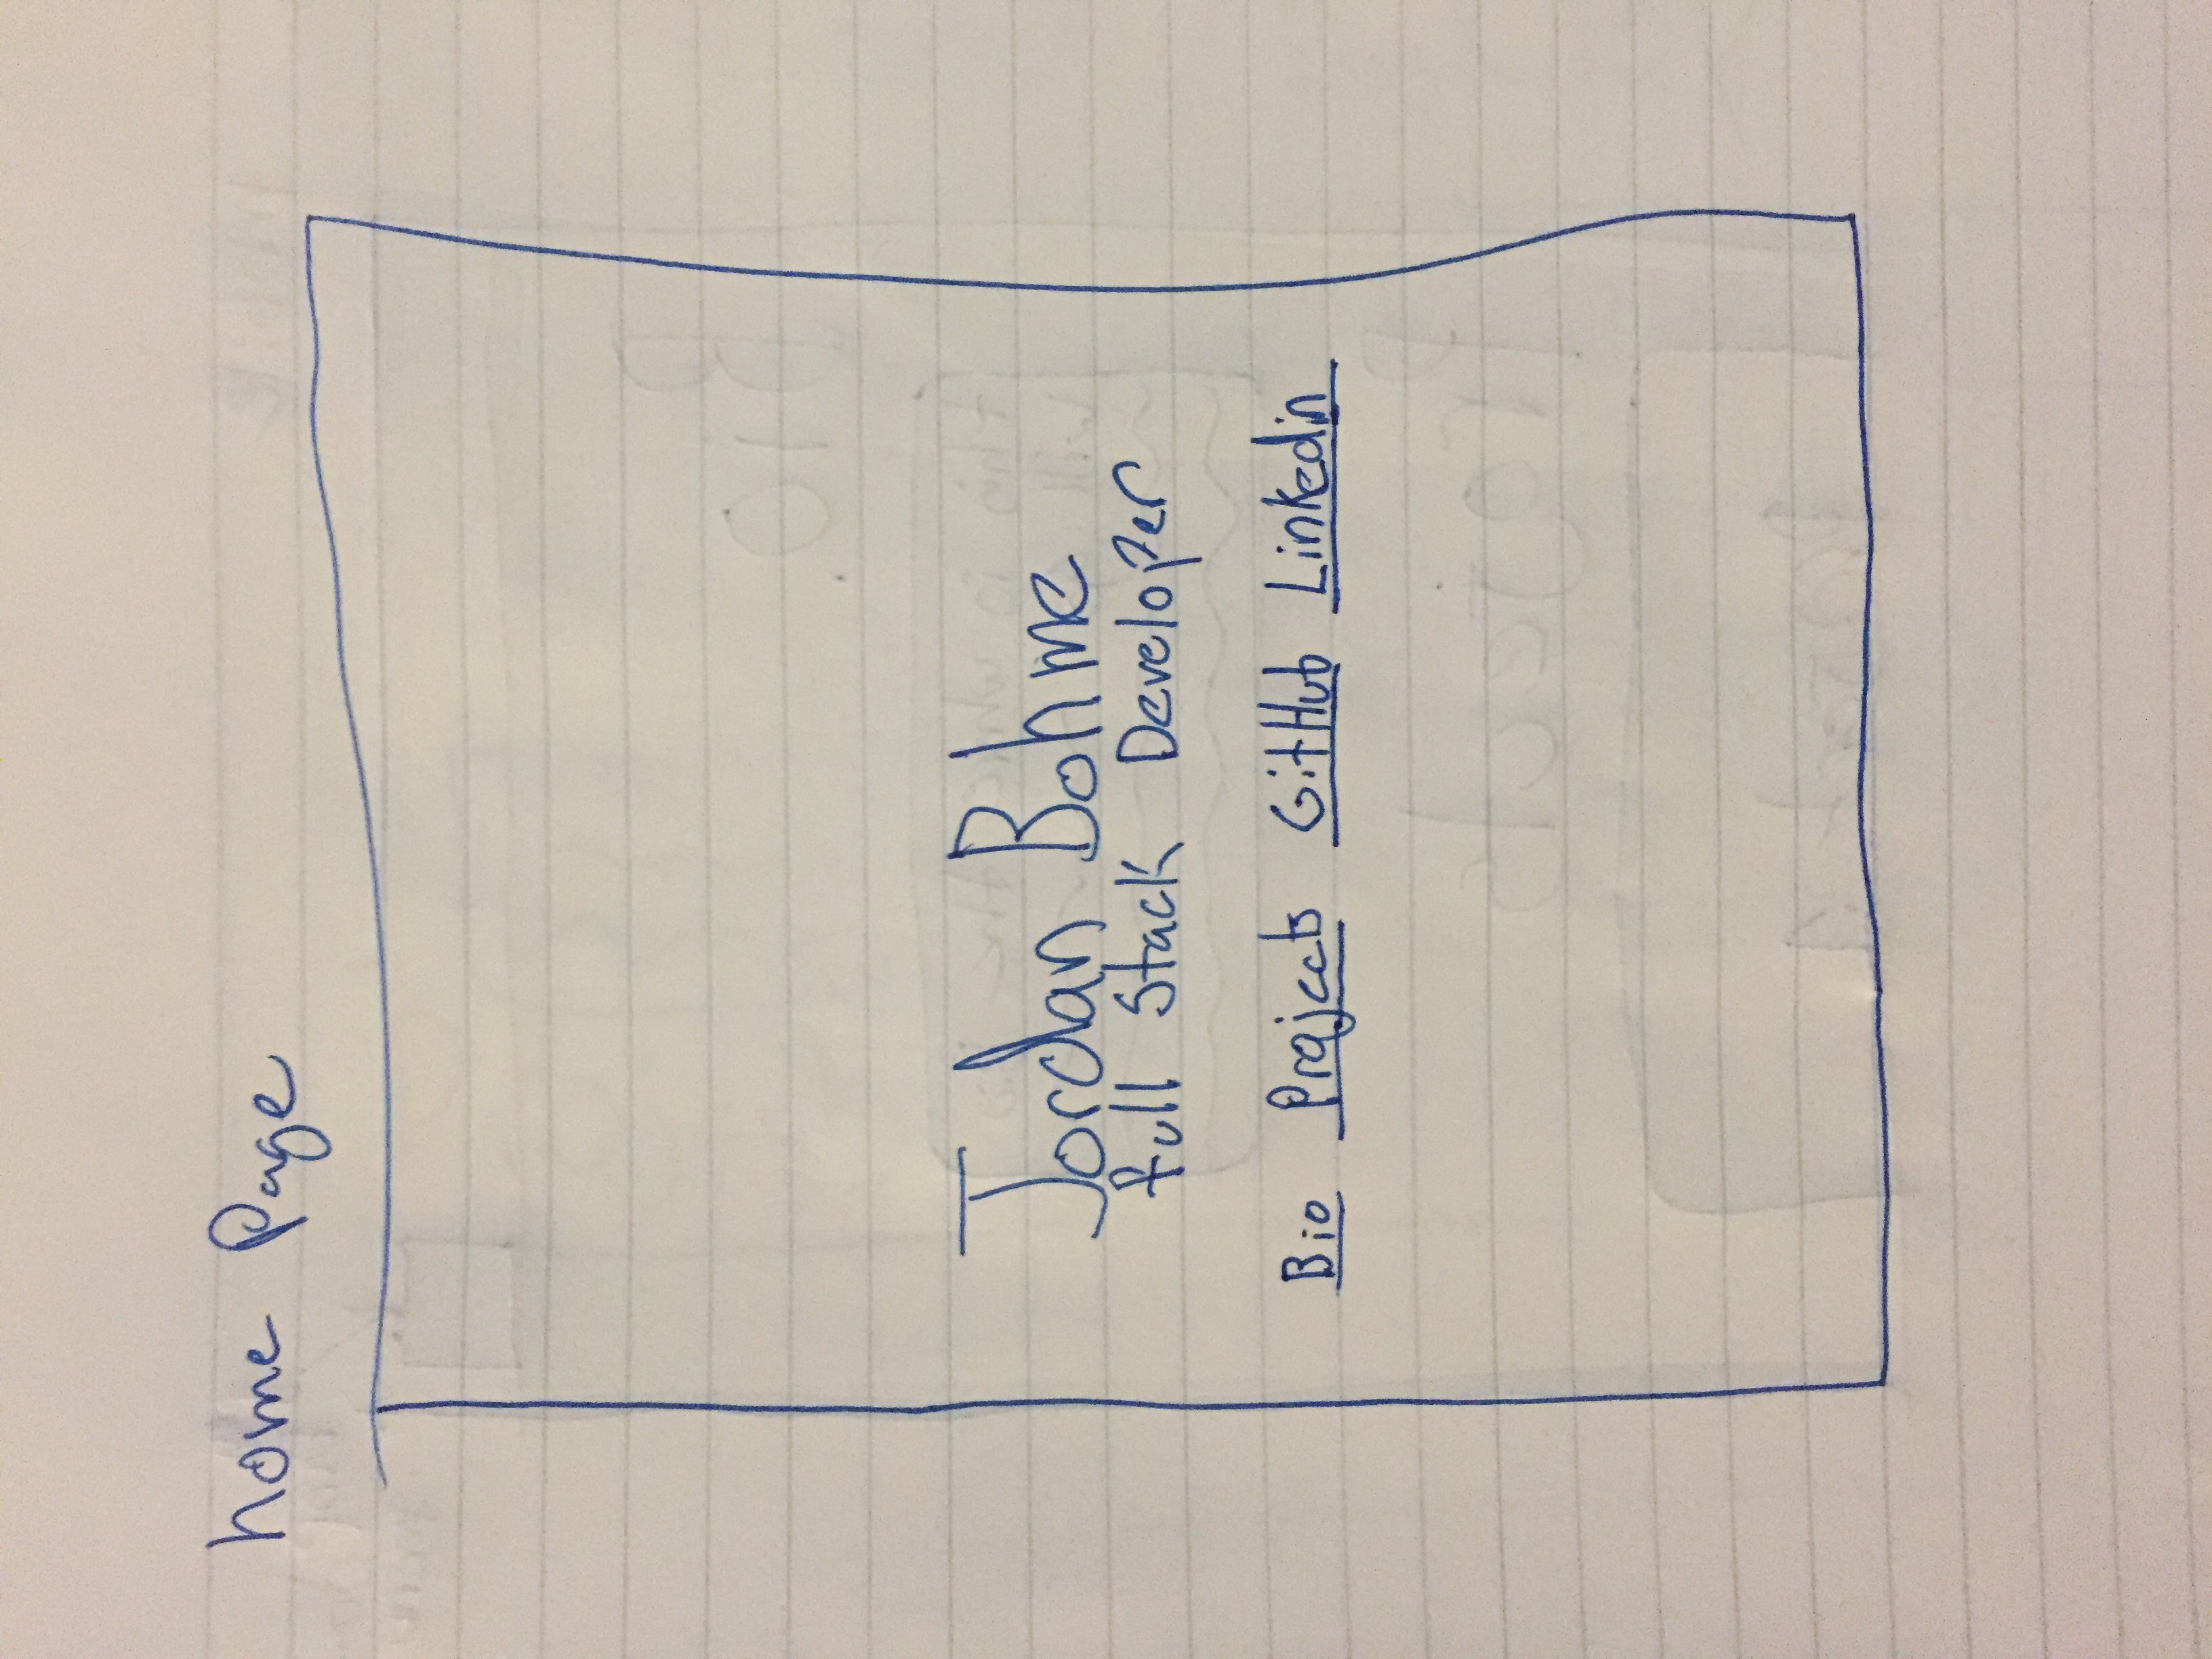 home Page
Jordan Bohme
full Stack Developer
Bio Projects GitHub Linkedin